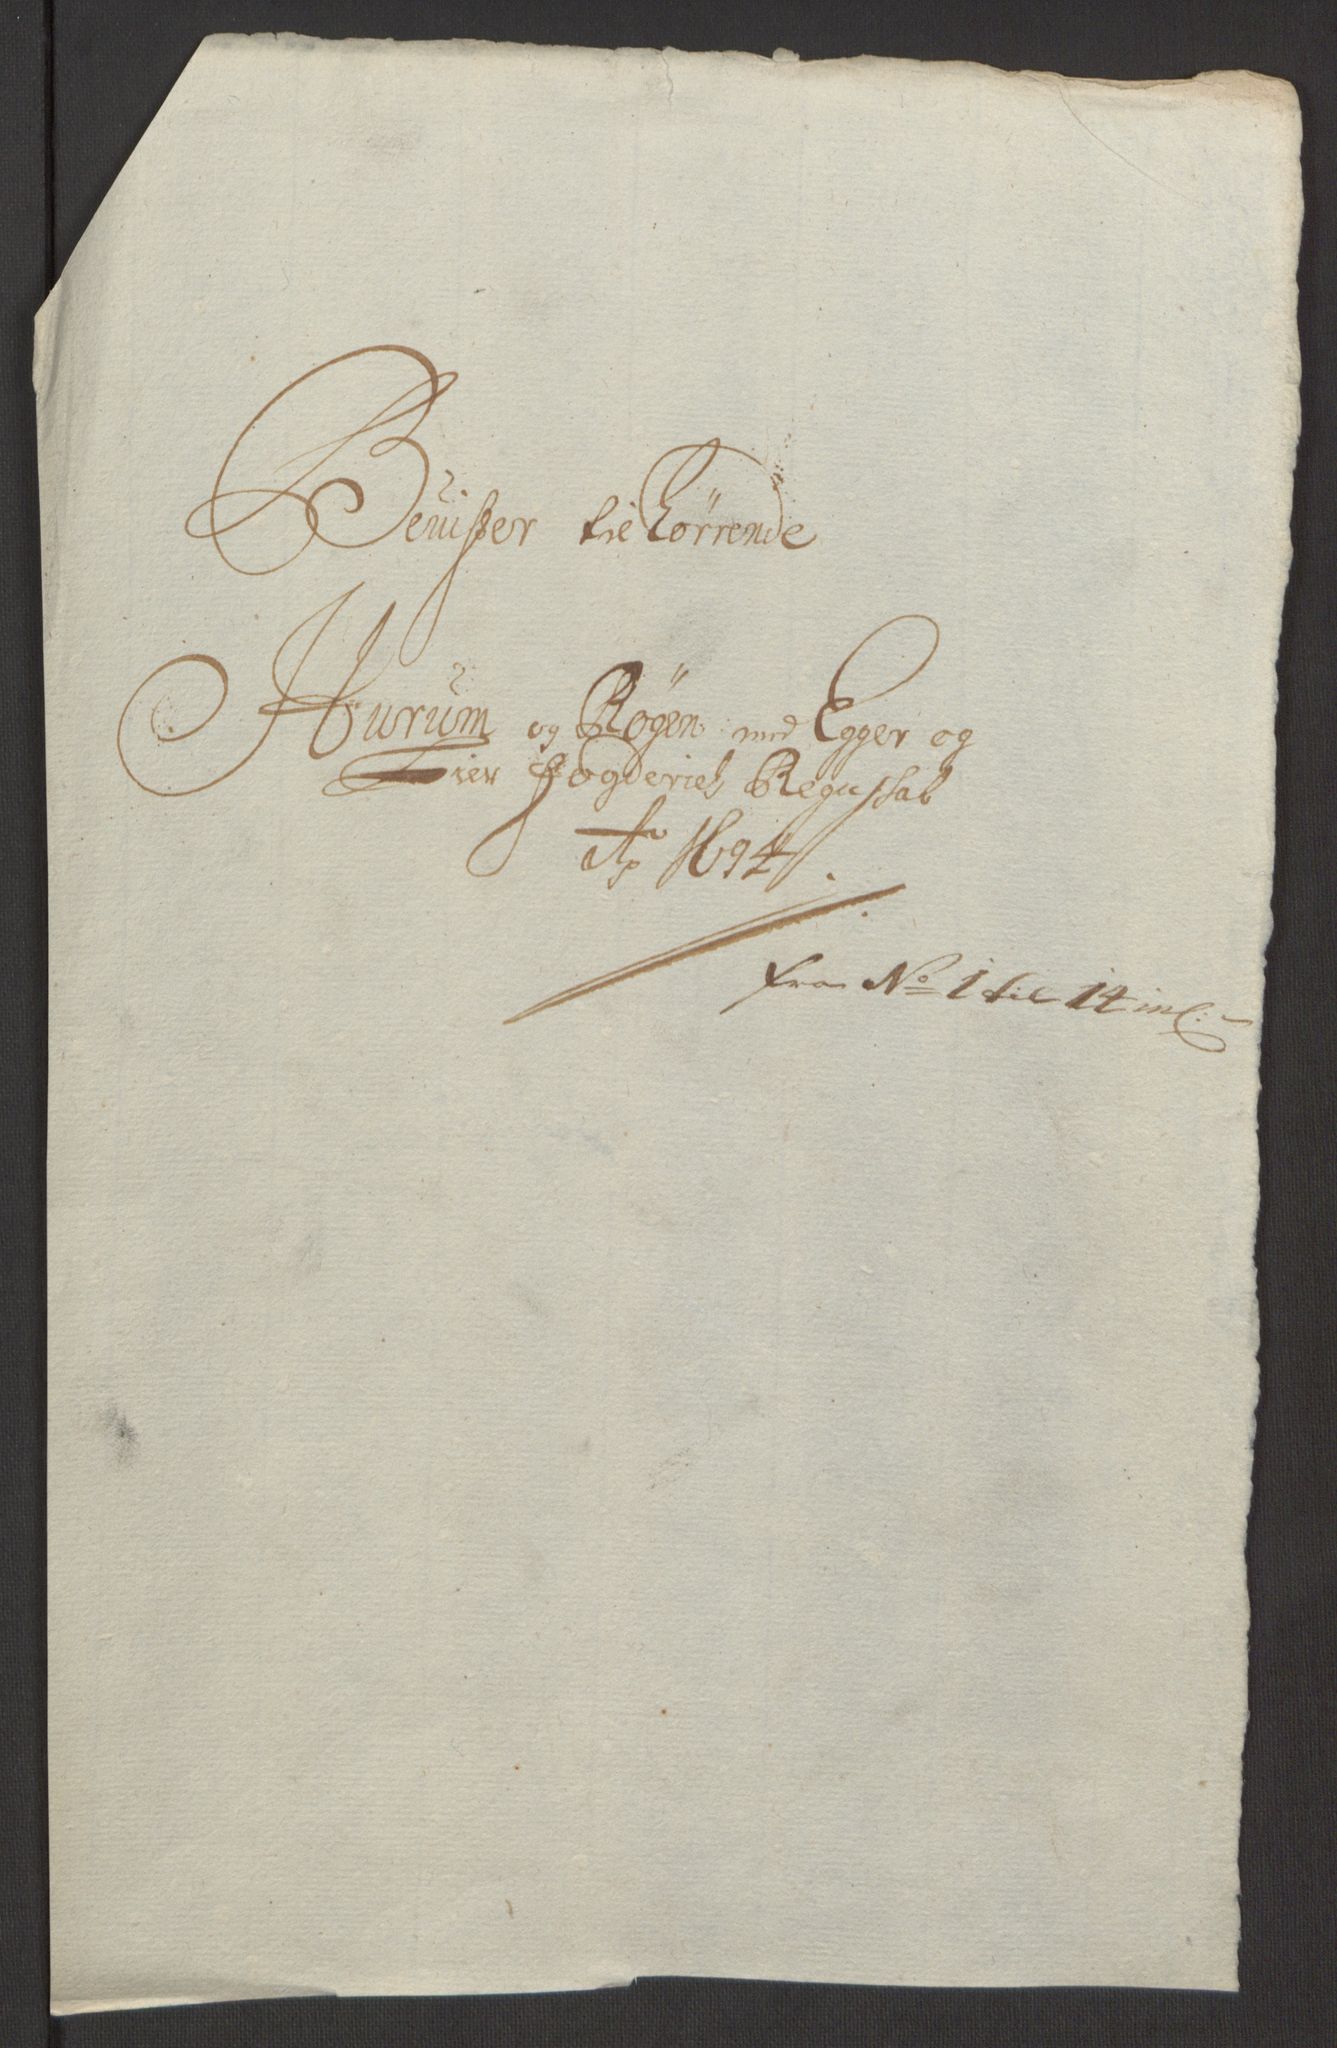 Beuißer til hørrende
Hurum og Røgen med Egger og
Lier Fogderies Regnschab
Ao 1694.
fra No 1 til 14 incl: